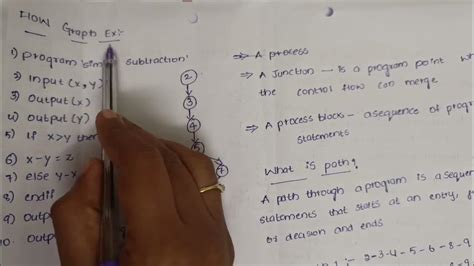 Flow Graph Ex:-
1) Program 'sim subtraction'
2) Input (x, y)
3) Output (x)
4) Output (y)
5) If x>y then
6) x-y = z
7) else y-x
8) endif
9) Outpu
10. Outpu
2
3
4
5
7
⇒ A process
⇒ A Junction - is a program point wh
the control flow can merge
⇒ A process block - a sequence of progra
statements
What is path?
A path through a program is a seque
statements that starts at an entry, J
or decision and ends
1 :- 2-3-4-5-6-8-9